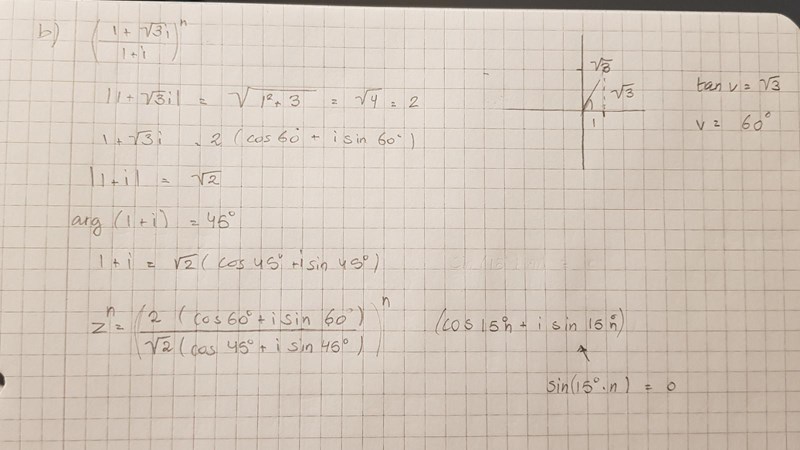 b) ((1 + √3i)/(1+i))^n
|1 + √3i| = √(1² + 3) = √4 = 2
1 + √3i . 2 (cos 60° + i sin 60°)
|1+i| = √2
arg (1+i) = 45°
1 + i = √2 (cos 45° + i sin 45°)
z^n = (2 (cos 60° + i sin 60°)/√2 (cos 45° + i sin 45°))^n
(cos 15°n + i sin 15°n)
sin(15°·n) = 0
√3
√3
1
tan v = √3
v = 60°